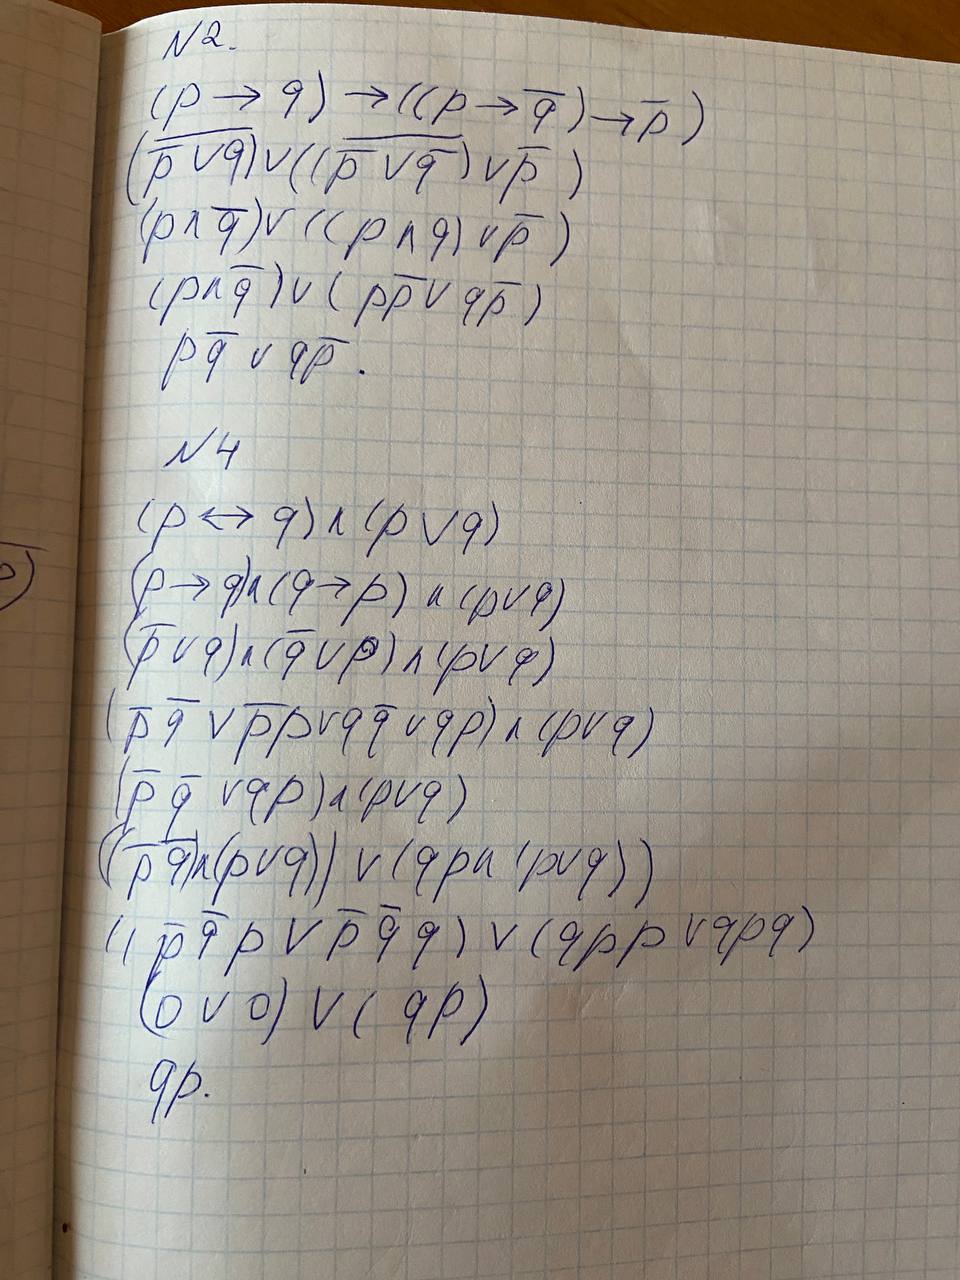 N2.
(p → q) → ((p → q̅) → p̅)
(\overline{p̅ ∨ q}) ∨ ((\overline{p̅ ∨ q̅}) ∨ p̅)
(p ∧ q̅) ∨ ((p ∧ q) ∨ p̅)
(p ∧ q̅) ∨ (pp̅ ∨ qp̅)
pq̅ ∨ qp̅.
N4
(p ↔ q) ∧ (p ∨ q)
(p → q) ∧ (q → p) ∧ (p ∨ q)
(p̅ ∨ q) ∧ (q̅ ∨ p) ∧ (p ∨ q)
(p̅ q̅ ∨ p̅p ∨ qq̅ ∨ qp) ∧ (p ∨ q)
(p̅ q̅ ∨ qp) ∧ (p ∨ q)
((p̅ q̅) ∧ (p ∨ q)) ∨ (qp ∧ (p ∨ q))
(( p̅ q̅ p ∨ p̅ q̅ q) ∨ (qpp ∨ qpq)
(0 ∨ 0) ∨ ( qp)
qp.